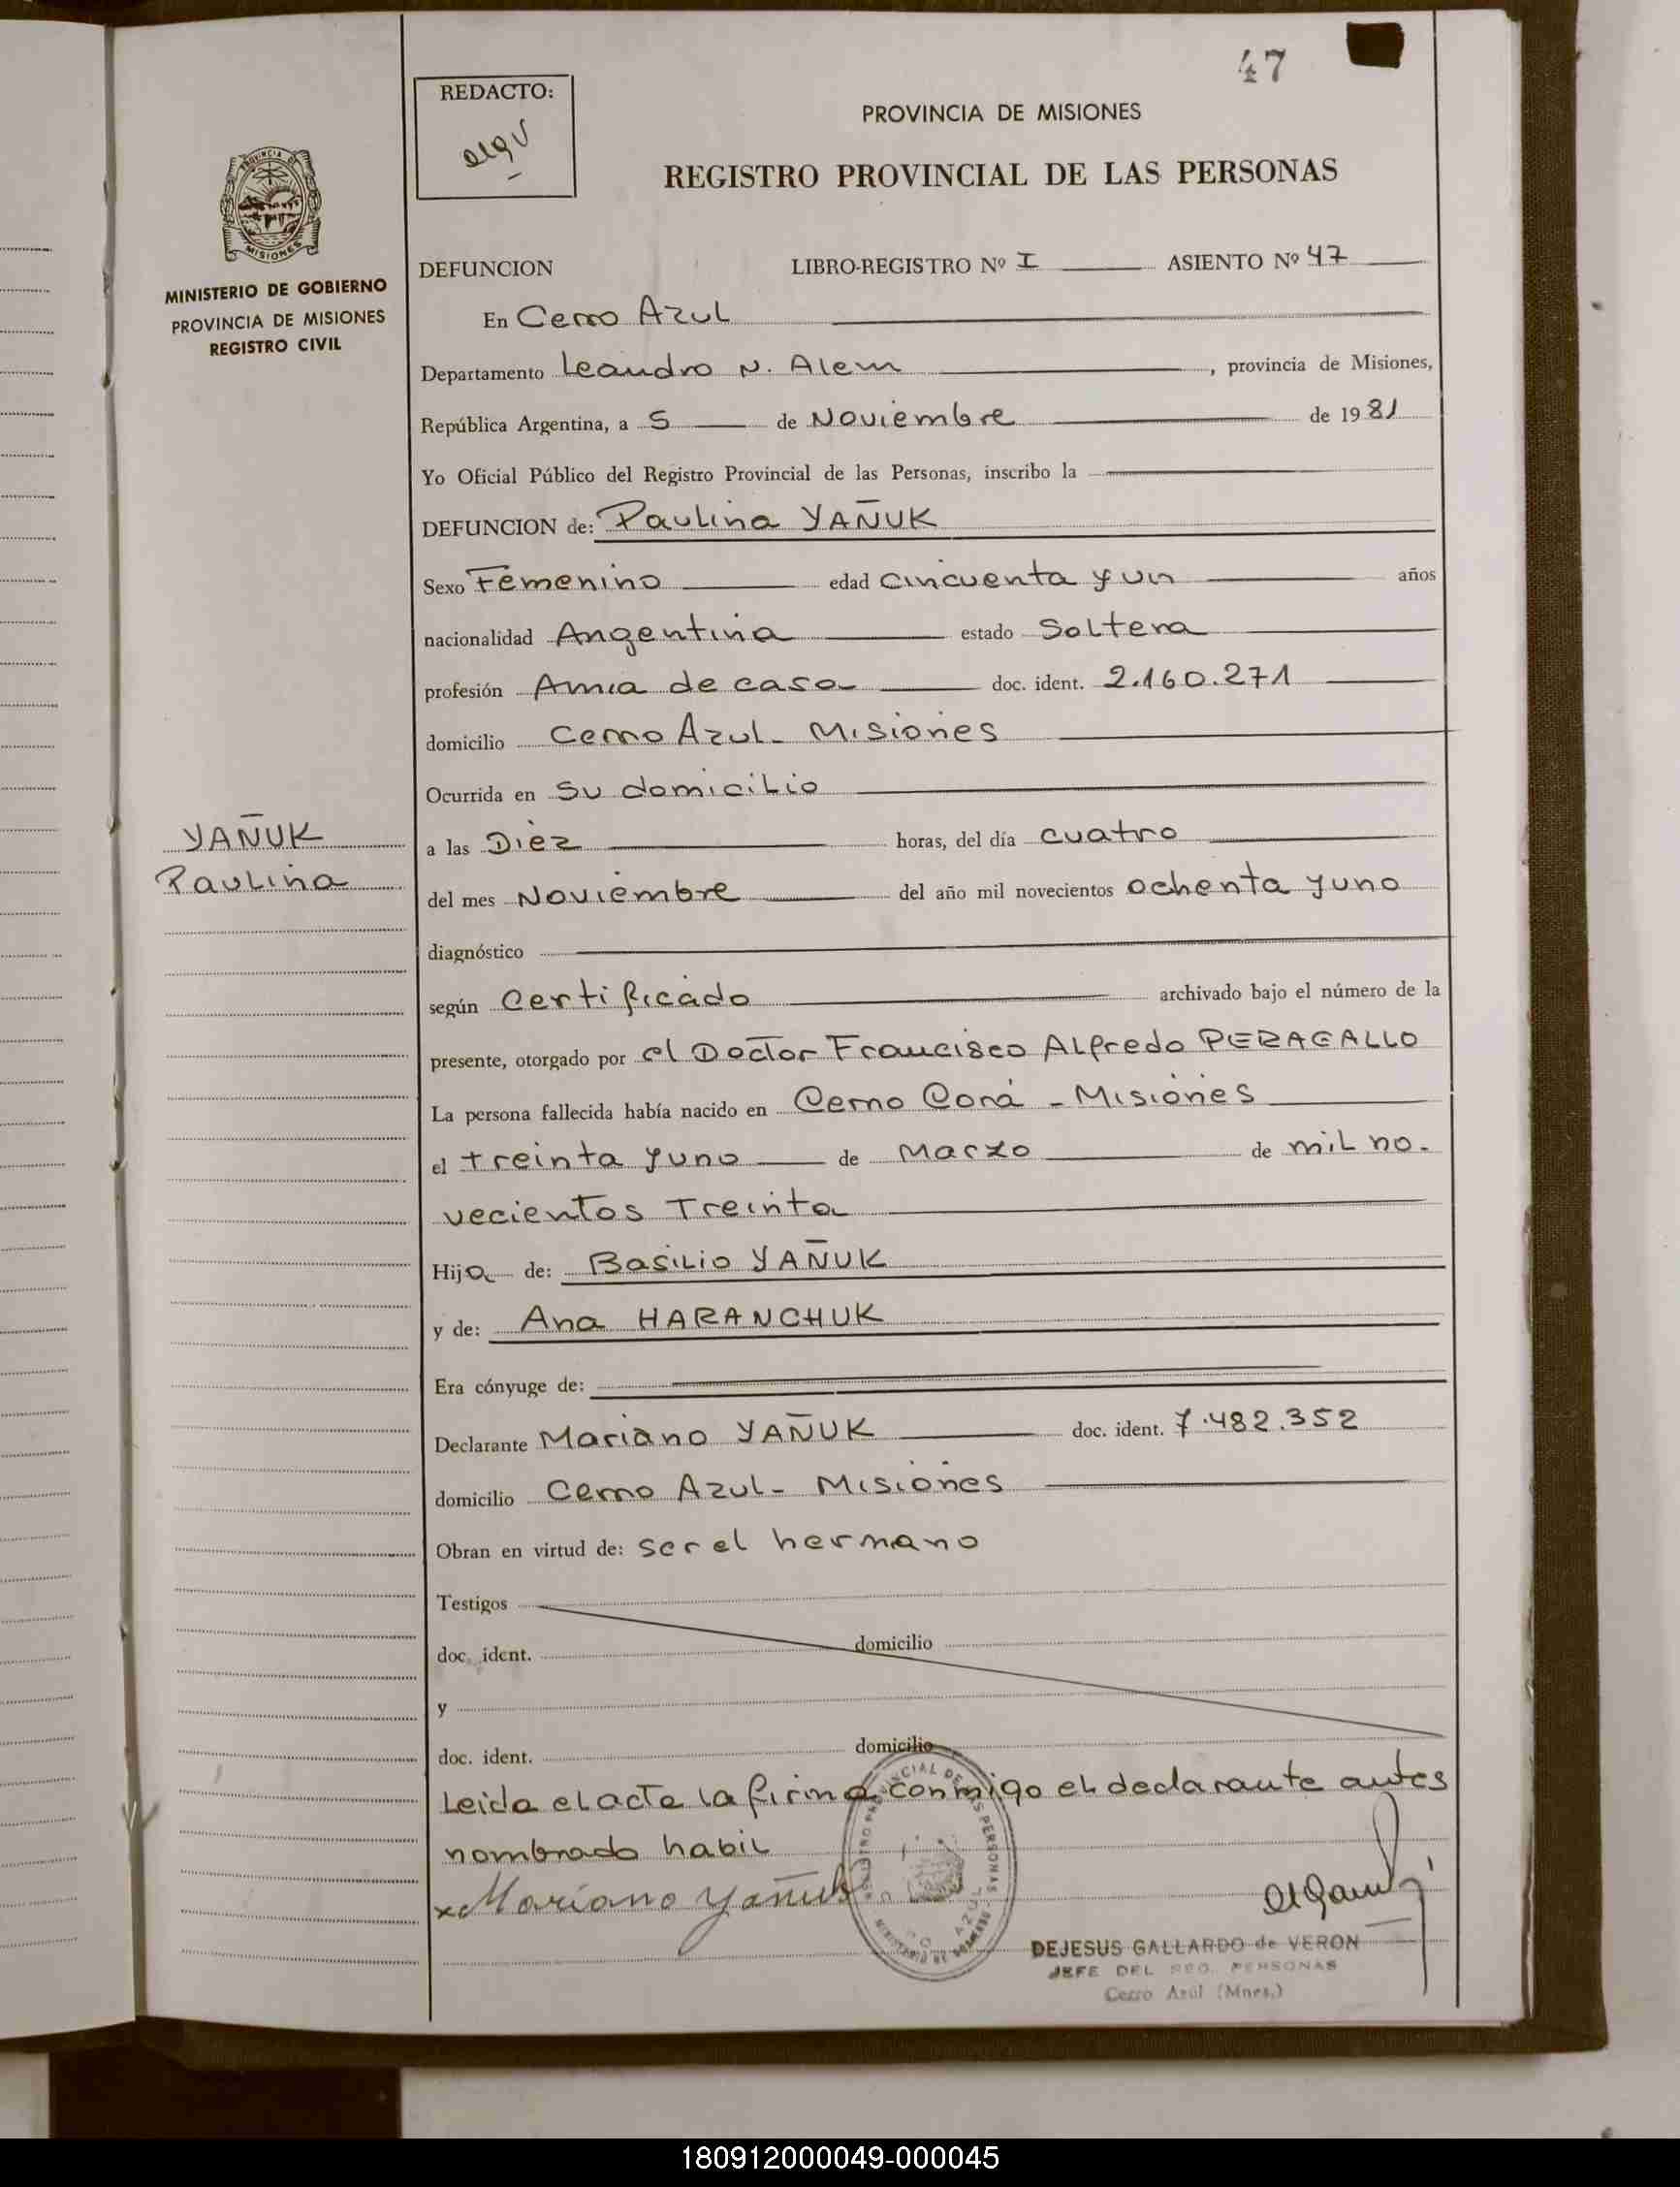 47
REDACTO:
PROVINCIA DE MISIONES
REGISTRO PROVINCIAL DE LAS PERSONAS
PROVINCIA DE
MISIONES
MINISTERIO DE GOBIERNO
PROVINCIA DE MISIONES
REGISTRO CIVIL
DEFUNCION LIBRO-REGISTRO Nº I ASIENTO Nº 47
En Cerro Azul
Departamento Leandro N. Alem, provincia de Misiones,
República Argentina, a 5 de Noviembre de 1981
Yo Oficial Público del Registro Provincial de las Personas, inscribo la
DEFUNCION de: Paulina YAÑUK
Sexo Femenino edad cincuenta y un años
nacionalidad Argentina estado Soltera
profesión Ama de casa doc. ident. 2.160.271
domicilio Cerro Azul - Misiones
Ocurrida en su domicilio
YAÑUK
Paulina
a las Diez horas, del día cuatro
del mes Noviembre del año mil novecientos ochenta y uno
diagnóstico
según Certificado archivado bajo el número de la
presente, otorgado por el Doctor Francisco Alfredo PERAGALLO
La persona fallecida había nacido en Cerro Corá - Misiones
el treinta y uno de Marzo de mil no-
vecientos Treinta
Hija de: Basilio YAÑUK
y de: Ana HARANCHUK
Era cónyuge de:
Declarante Mariano YAÑUK doc. ident. 7.482.352
domicilio Cerro Azul - Misiones
Obran en virtud de: ser el hermano
Testigos
doc. ident. domicilio
y
doc. ident. domicilio
Leida el acta la firma conmigo el declarante antes
nombrado habil
x Mariano Yañuk
DEJESUS GALLARDO de VERON
JEFE DEL REG. PERSONAS
Cerro Azul (Mnes.)
180912000049-000045